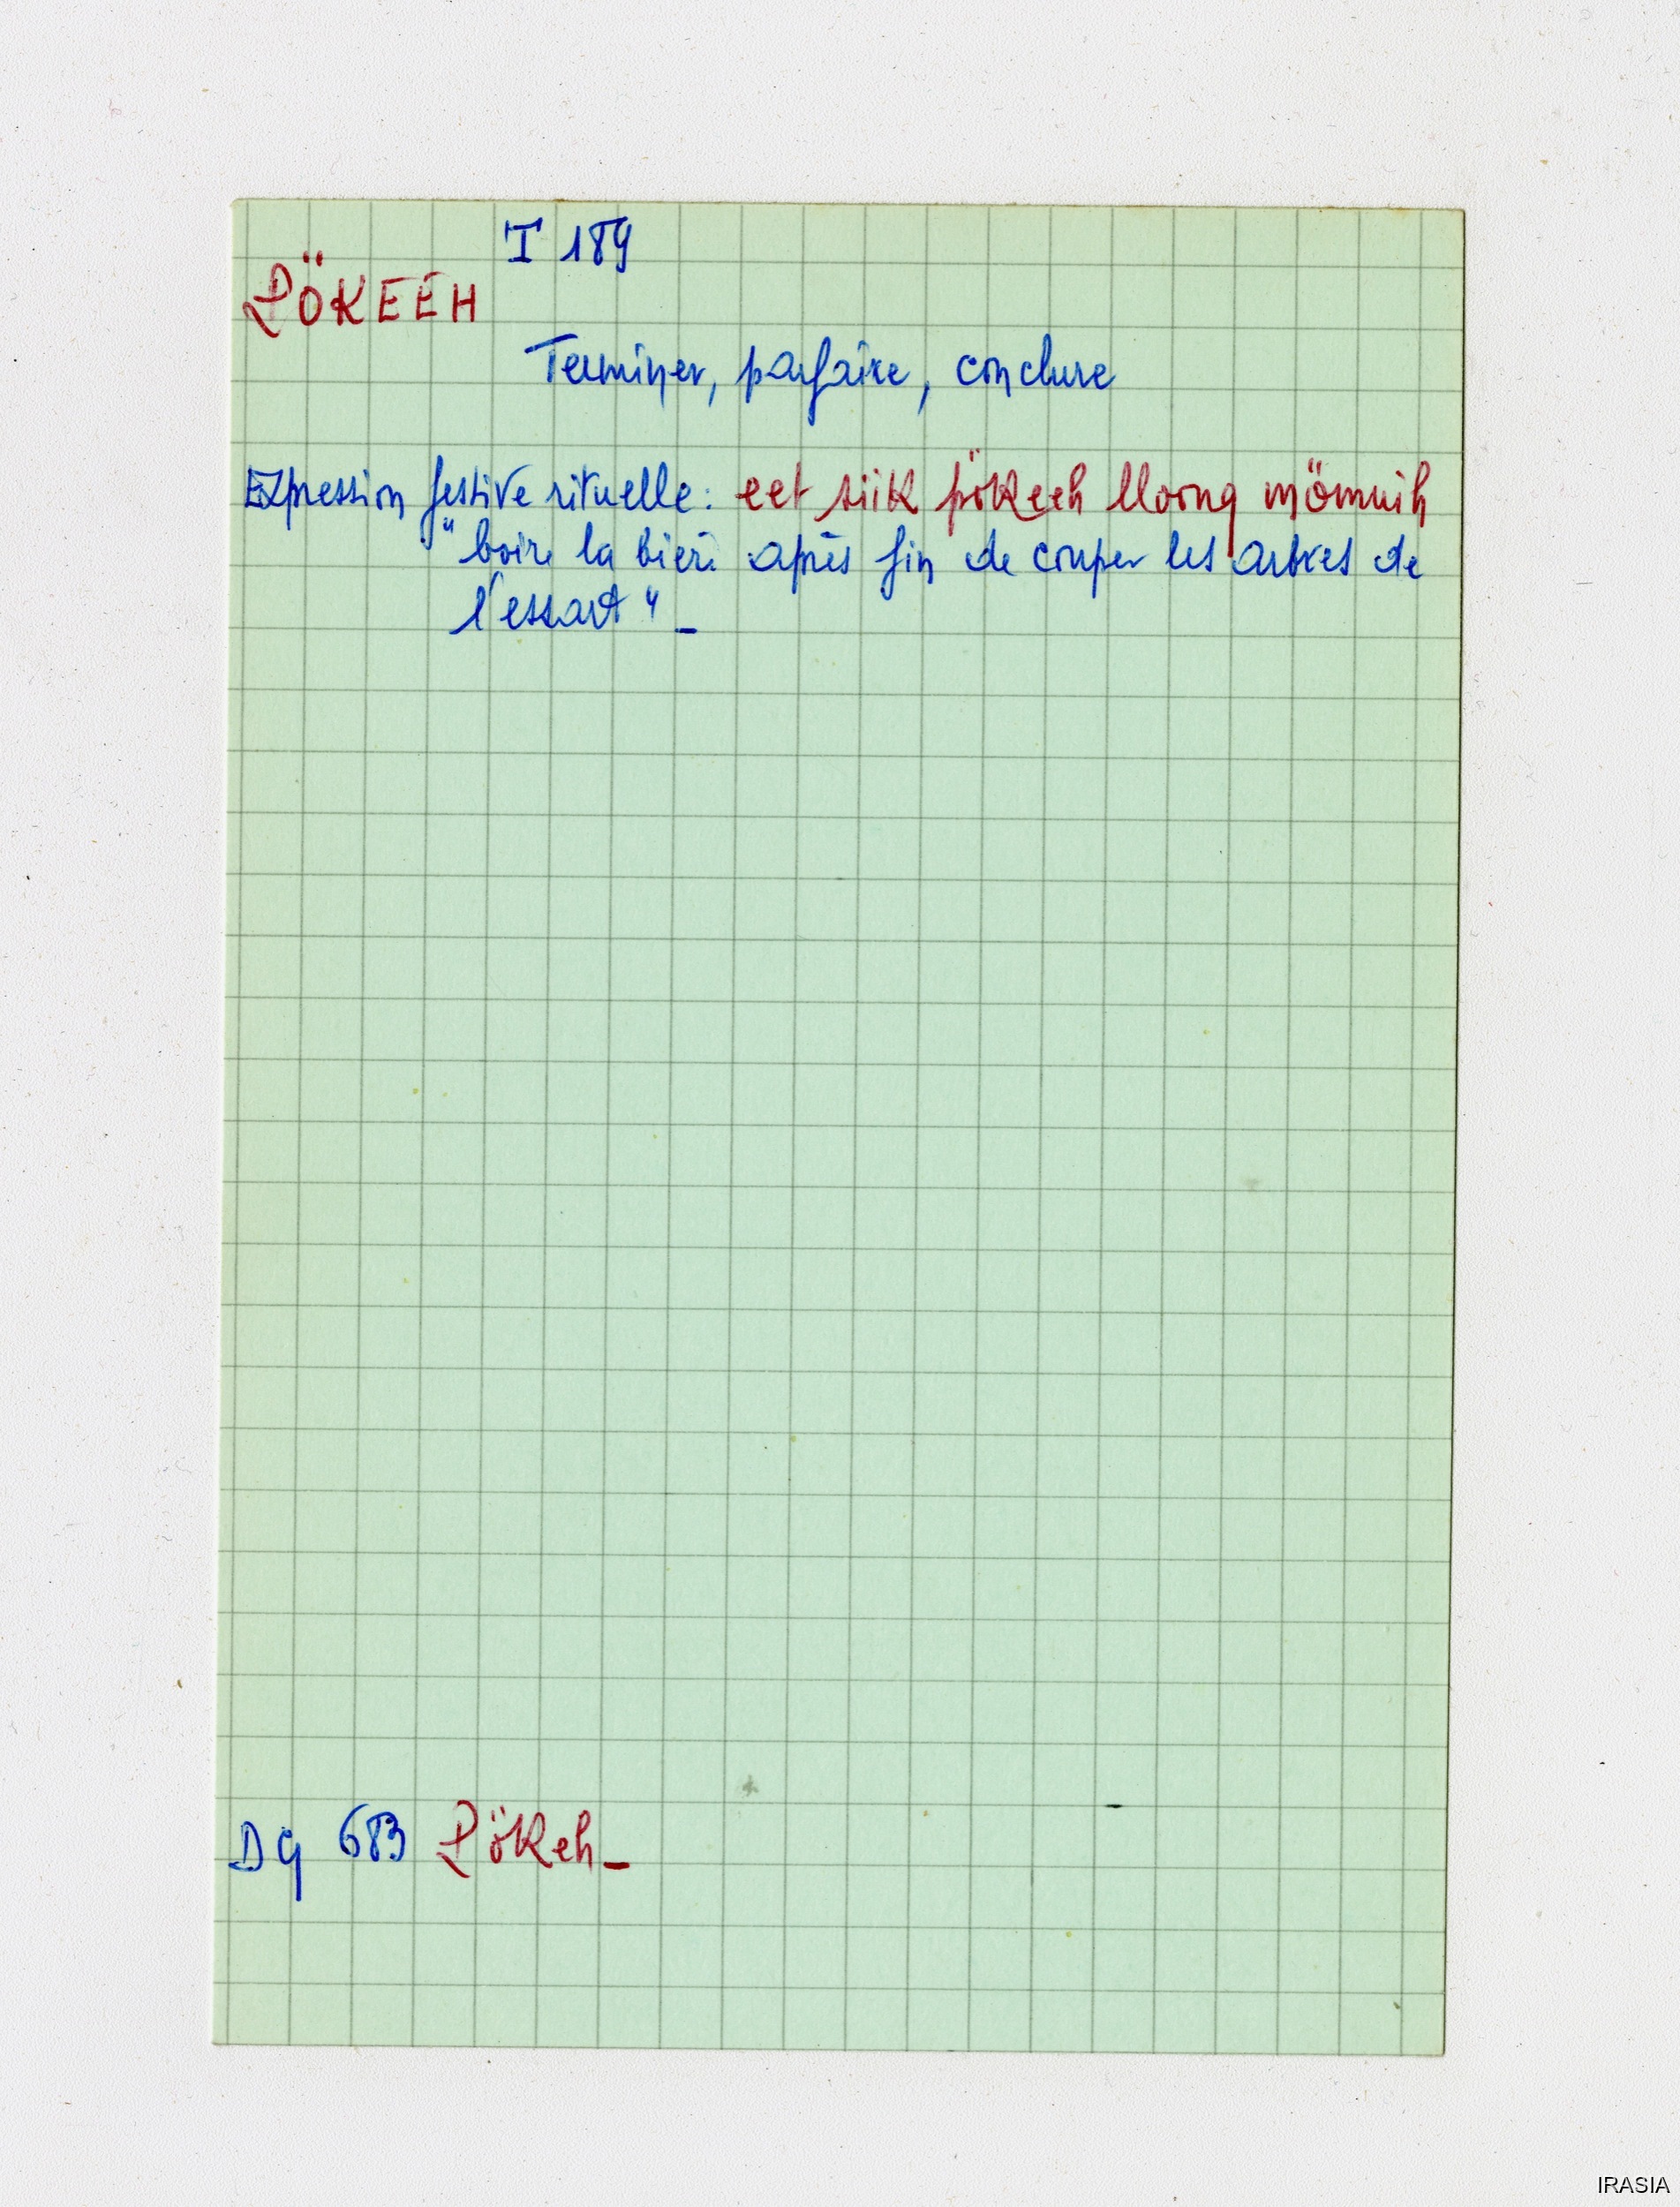 I 189
PÖKEEH
Terminer, parfaire, conclure
Expression festive rituelle: eet siik pökeeh lloong mömuih
"boire la bière après fin de couper les arbres de
l'essart"_
DG 683 Pökeh_
IRASIA